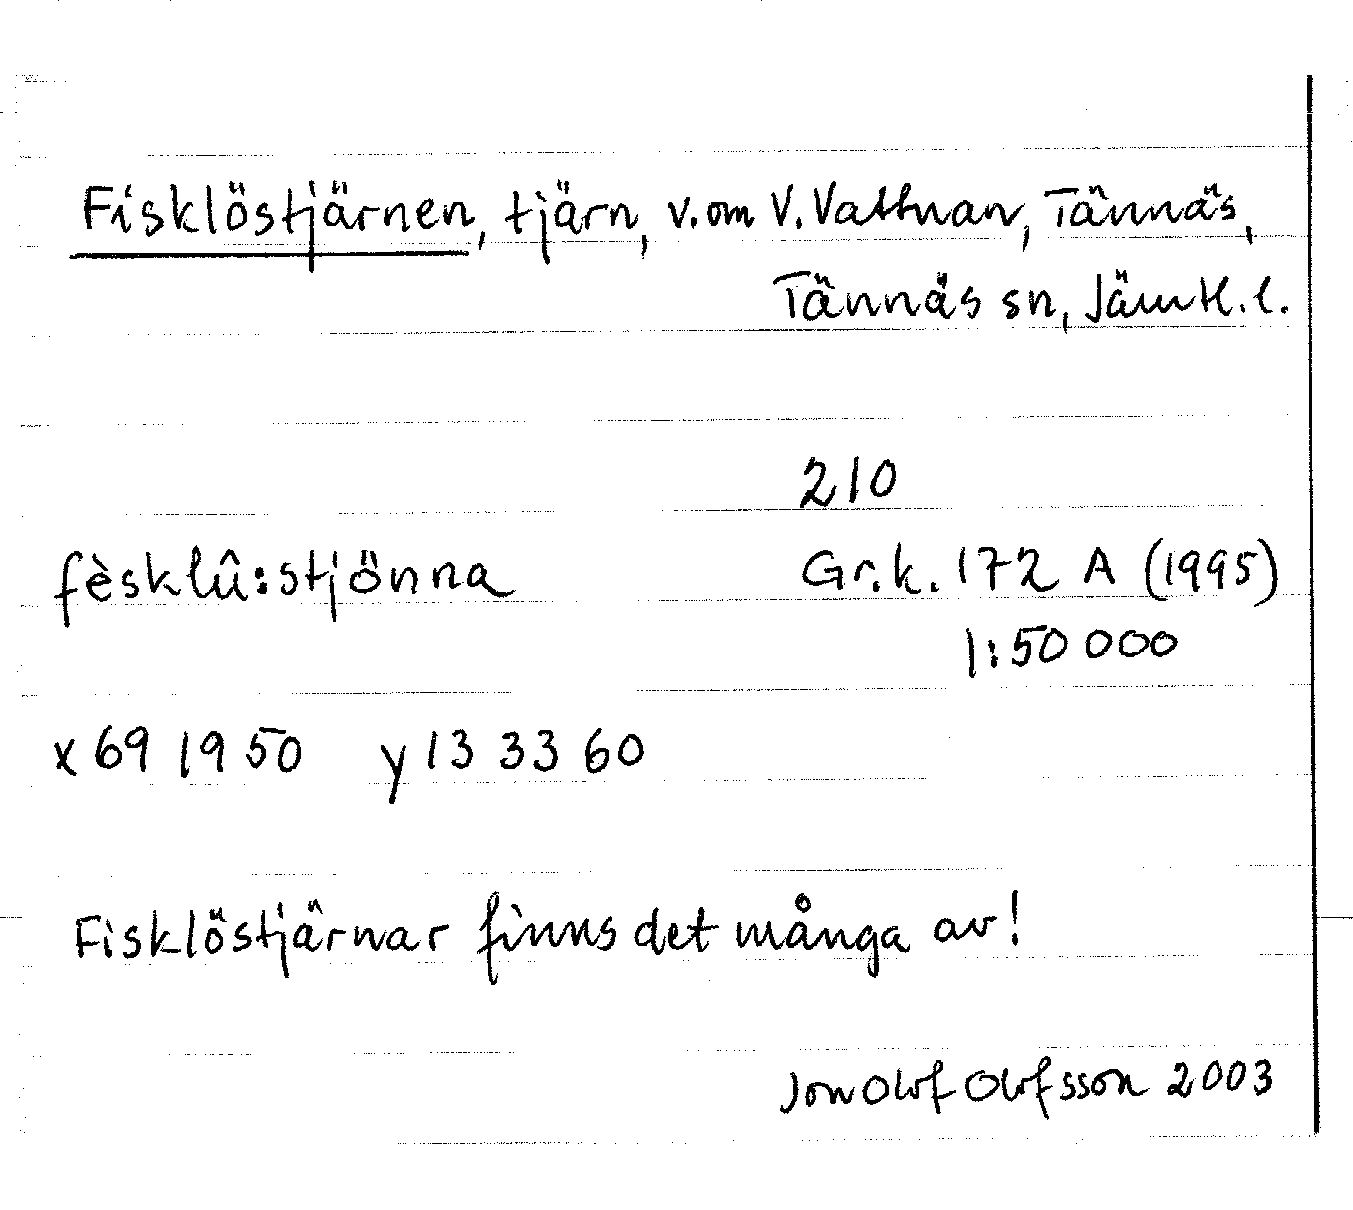 Fisklöstjärnen, tjärn, v. om V. Vattnan, Tännäs,
Tännäs sn, Jämtl. l.
210
fèsklû:stjönna Gr.k. 172 A (1995)
1:50 000
x 69 19 50 y 13 33 60
Fisklöstjärnar finns det många av!
Jon Olof Olofsson 2003